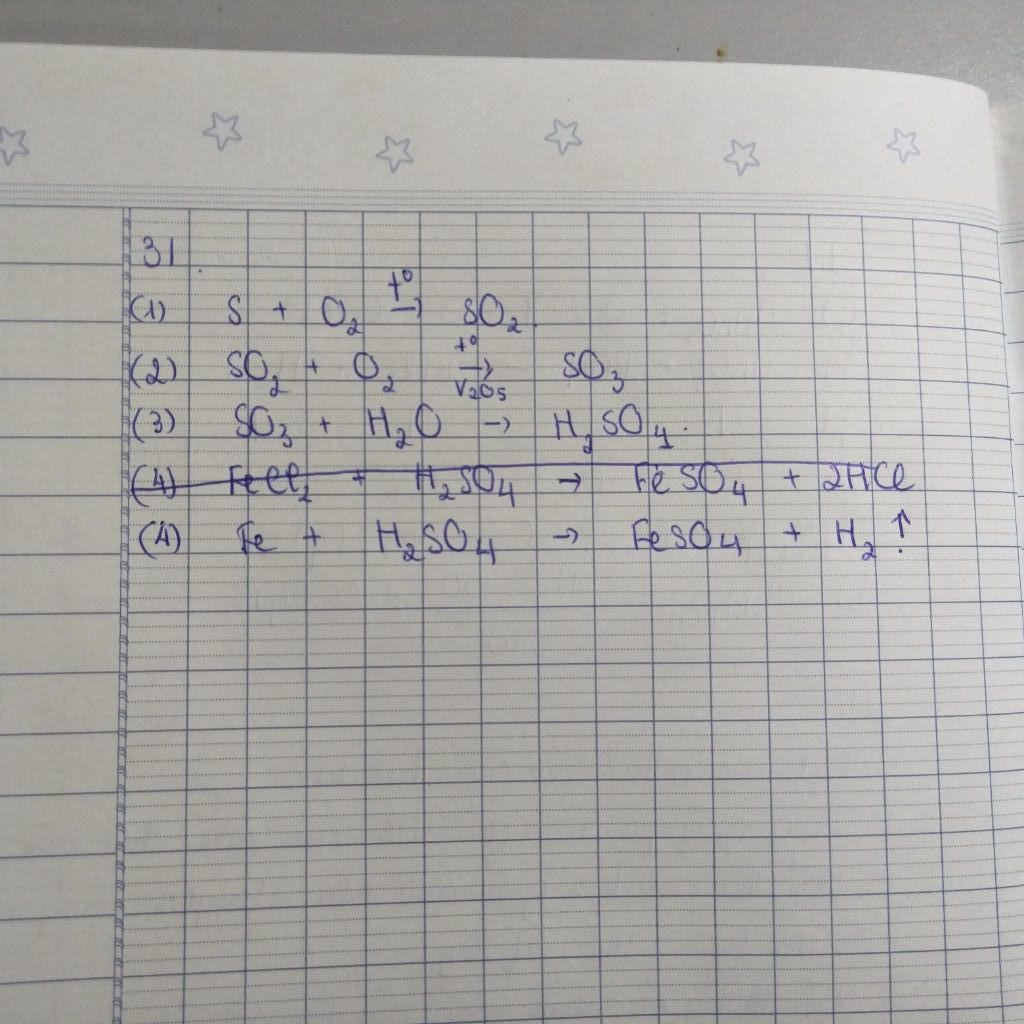 31.
(1) S + O₂ t° → SO₂.
(2) SO₂ + O₂ t° → V₂O₅ SO₃
(3) SO₃ + H₂O → H₂SO₄.
(4) FeCl₂ + H₂SO₄ → FeSO₄ + 2HCl
(4) Fe + H₂SO₄ → FeSO₄ + H₂↑.